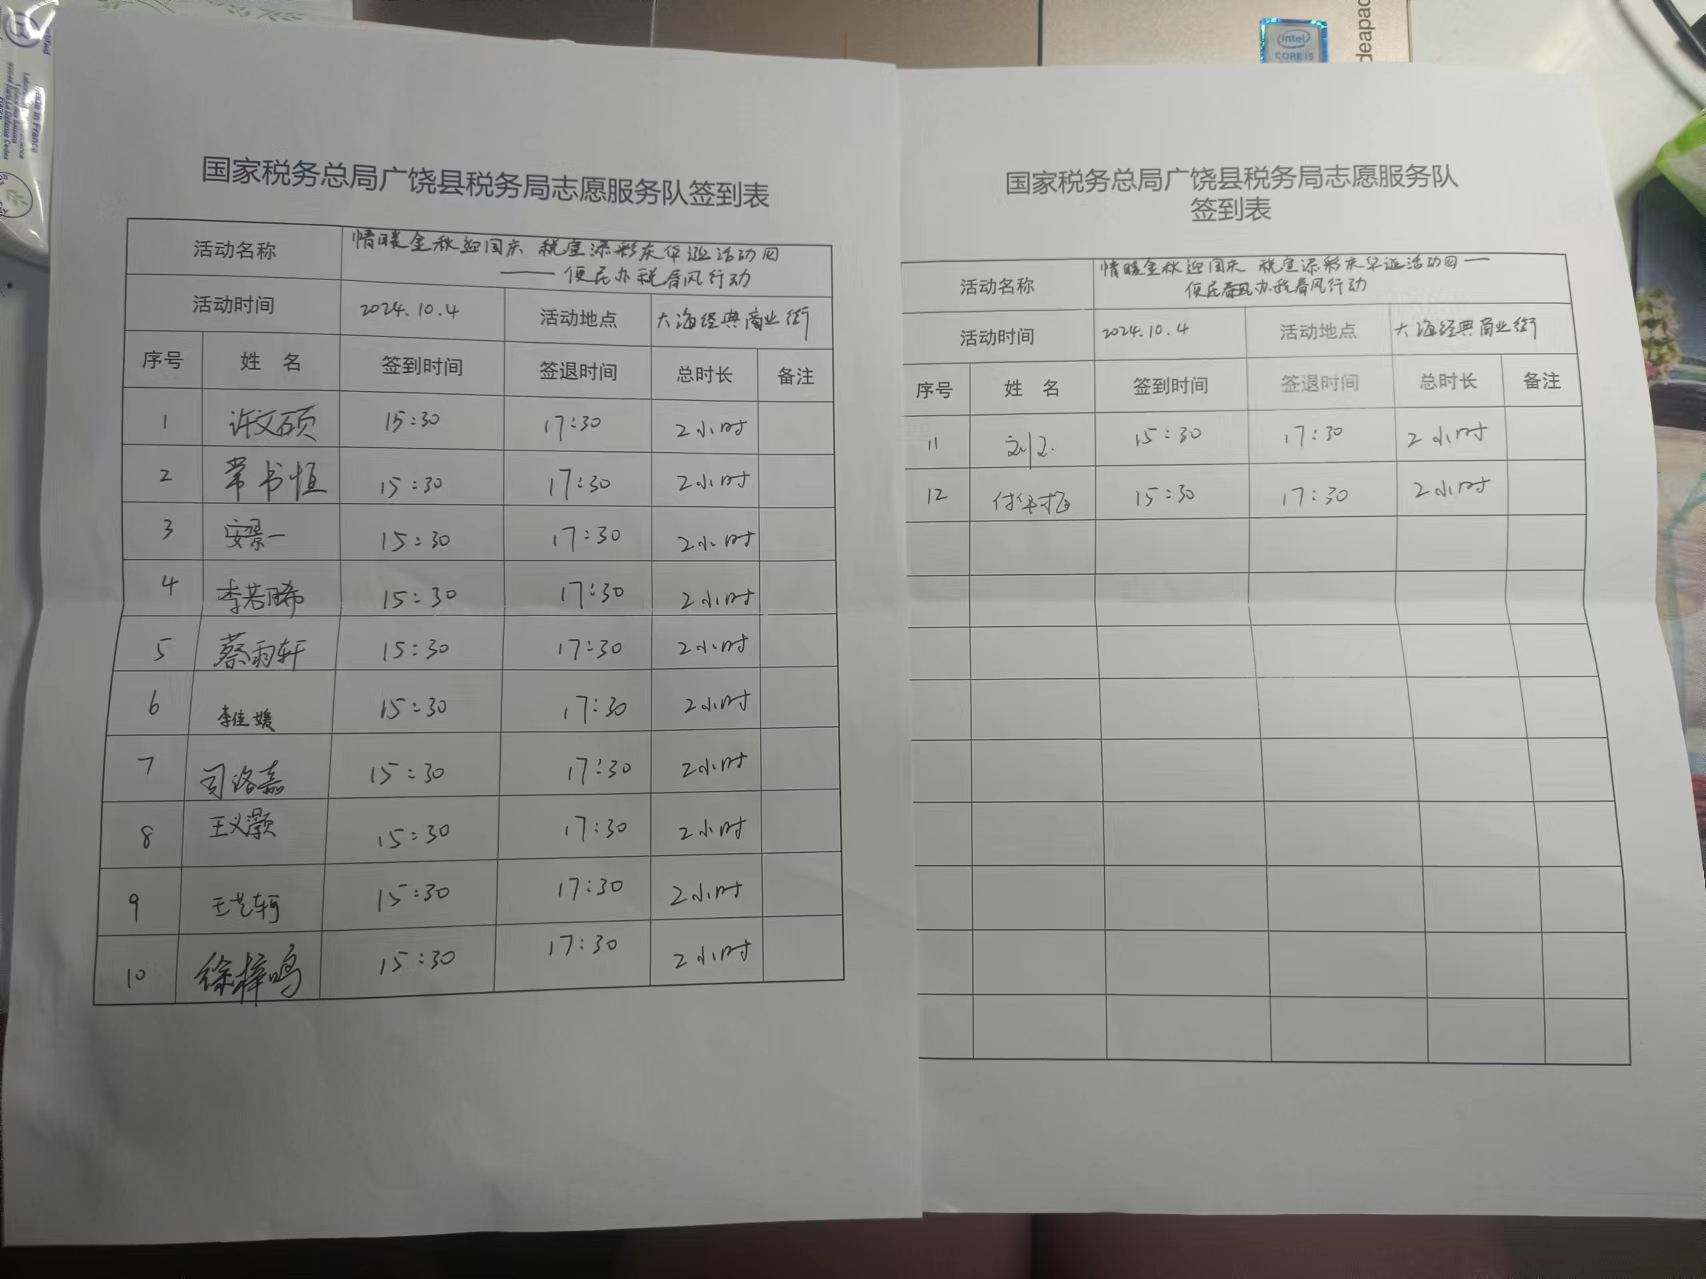 intel
CORE i5
deapad
Made in France
国家税务总局广饶县税务局志愿服务队签到表
活动名称
情暖金秋迎国庆 税宣添彩庆华诞活动四
——便民办税春风行动
活动时间 2024.10.4 活动地点 大海经典商业街
序号 姓 名 签到时间 签退时间 总时长 备注
1 许文硕 15:30 17:30 2小时
2 常书恒 15:30 17:30 2小时
3 安景一 15:30 17:30 2小时
4 李若晞 15:30 17:30 2小时
5 蔡雨轩 15:30 17:30 2小时
6 李佳媛 15:30 17:30 2小时
7 司洛嘉 15:30 17:30 2小时
8 王义灏 15:30 17:30 2小时
9 王艺轲 15:30 17:30 2小时
10 徐梓鸣 15:30 17:30 2小时
国家税务总局广饶县税务局志愿服务队
签到表
活动名称
情暖金秋迎国庆 税宣添彩庆华诞活动四——
便民办税春风行动
活动时间 2024.10.4 活动地点 大海经典商业街
序号 姓 名 签到时间 签退时间 总时长 备注
11 15:30 17:30 2小时
12 15:30 17:30 2小时